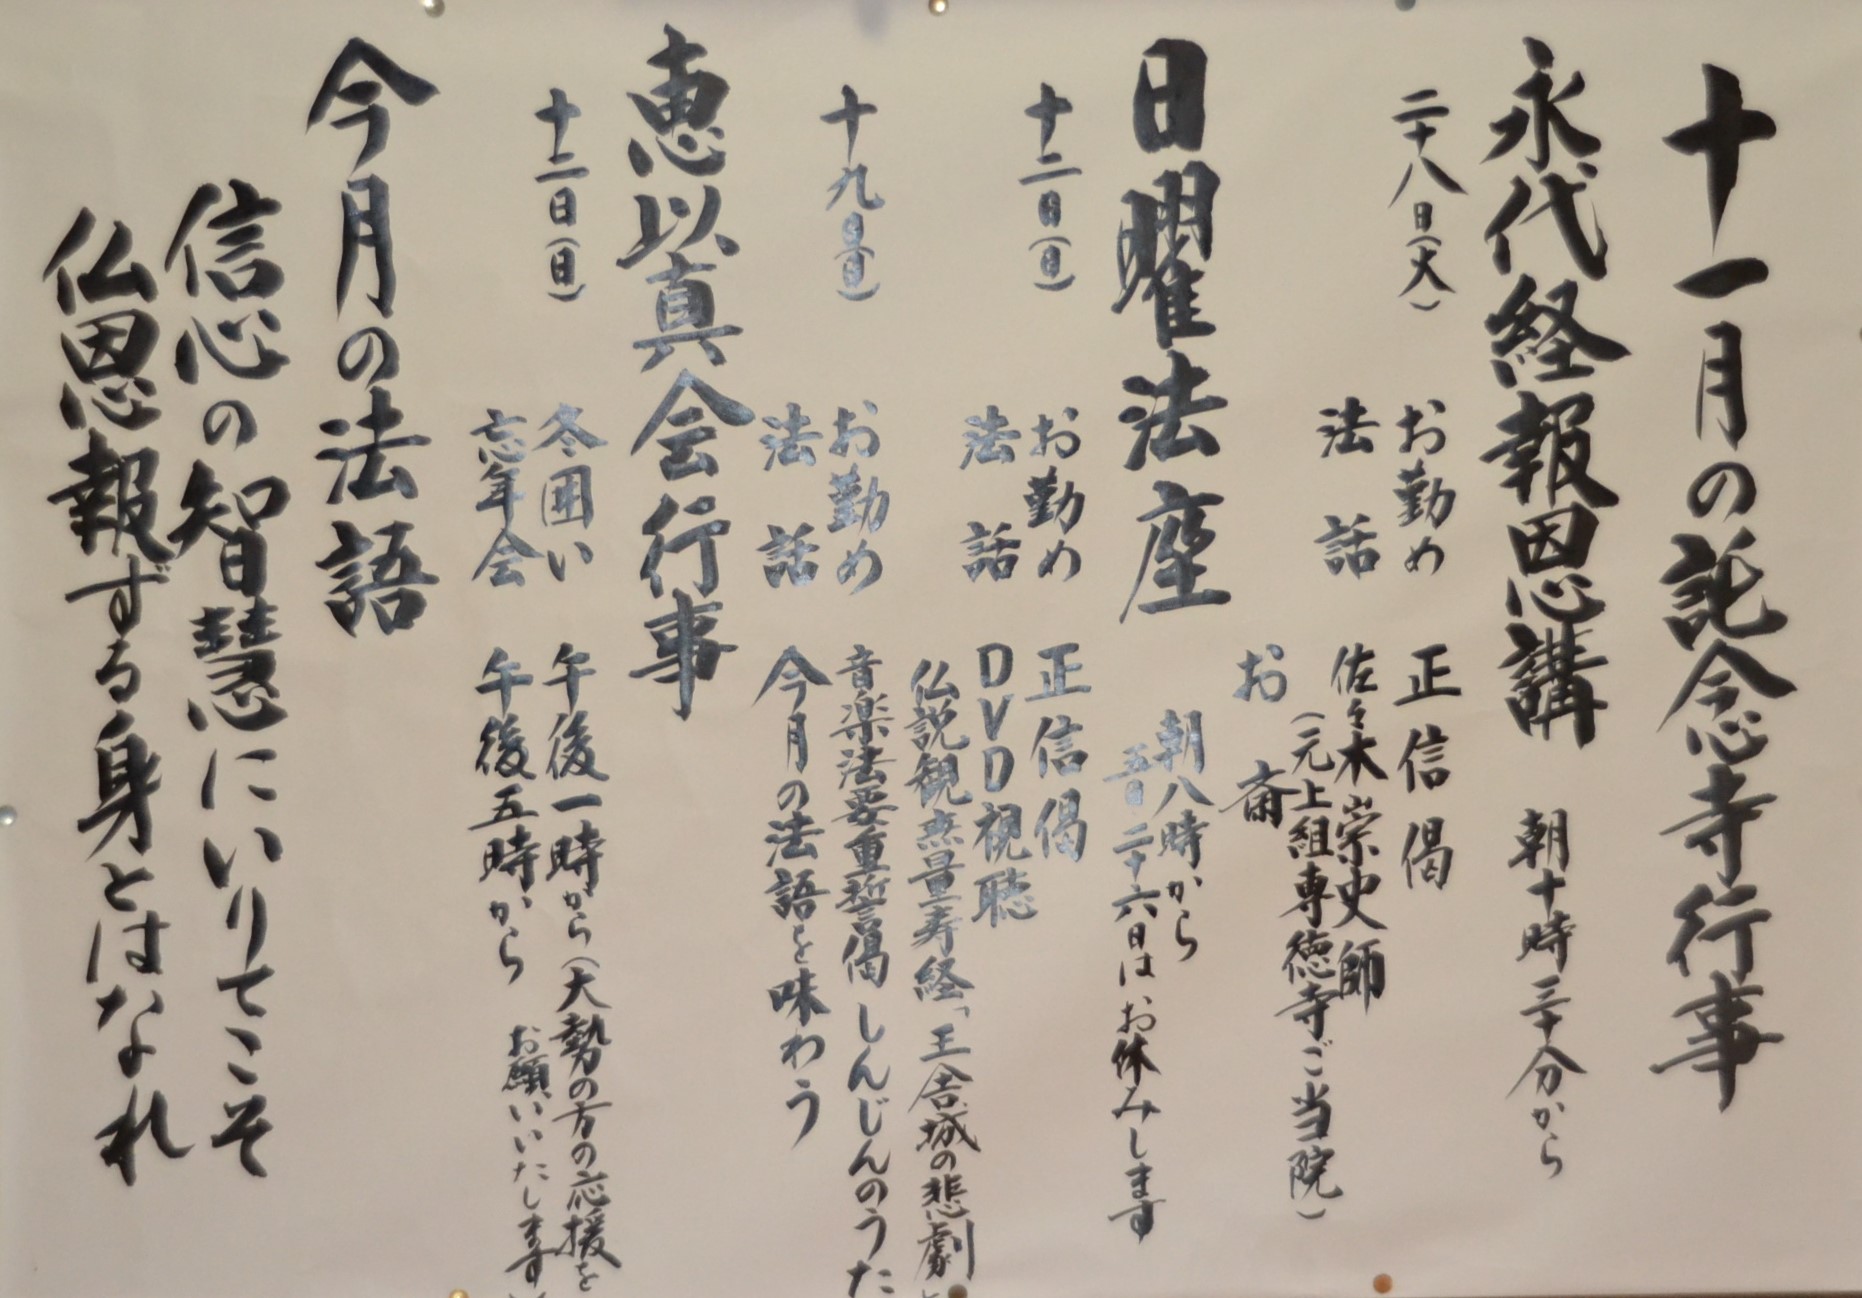 十一月の託念寺行事
永代経報恩講 朝十時三十分から
二十八日(火) お勤め 正信偈
法話 佐々木崇史師
(元上組専徳寺ご当院)
お斎
日曜法座 朝八時から
五日・二十六日はお休みします
十二日(日) お勤め 正信偈
法話 DVD視聴
仏説観無量寿経「王舎城の悲劇」
十九日(日) お勤め 音楽法要重誓偈 しんじんのうた
法話 今月の法語を味わう
恵以真会行事
十二日(日) 冬囲い 午後一時から(大勢の方の応援を
お願いいたします)
忘年会 午後五時から
今月の法語
信心の智慧にいりてこそ
仏恩報ずる身とはなれ